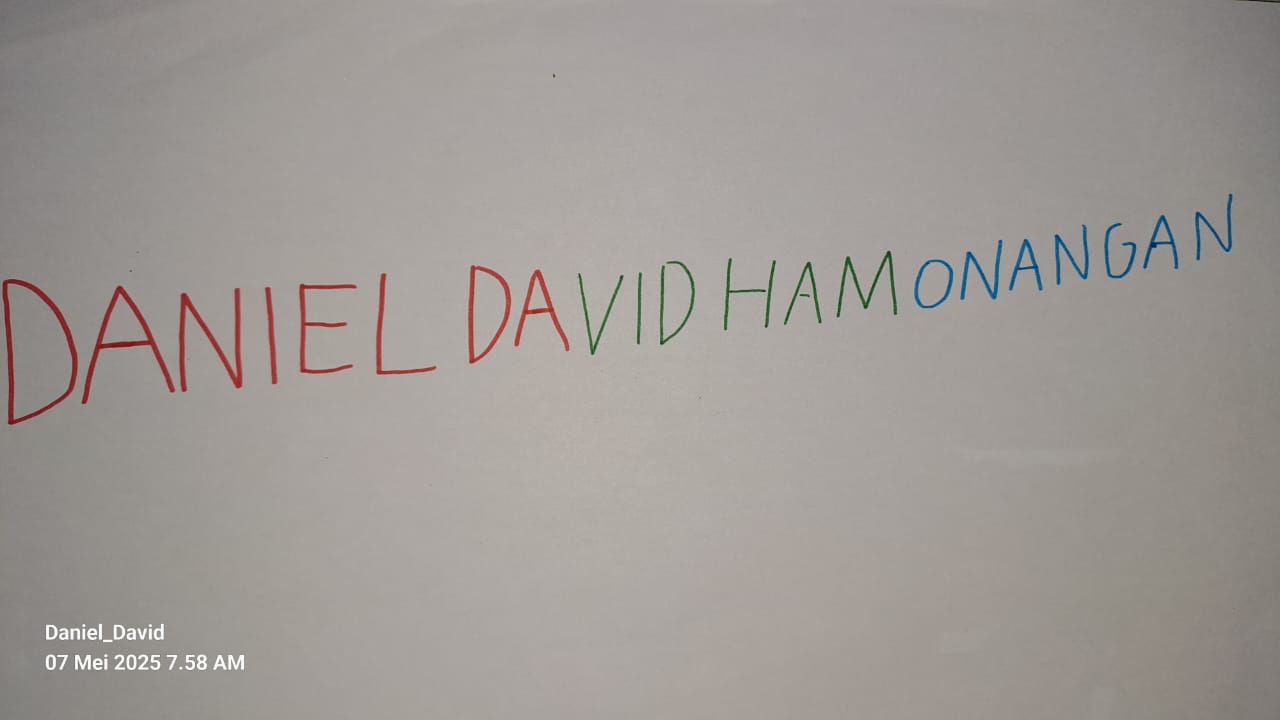 DANIEL DAVID HAMONANGAN
Daniel_David
07 Mei 2025 7.58 AM